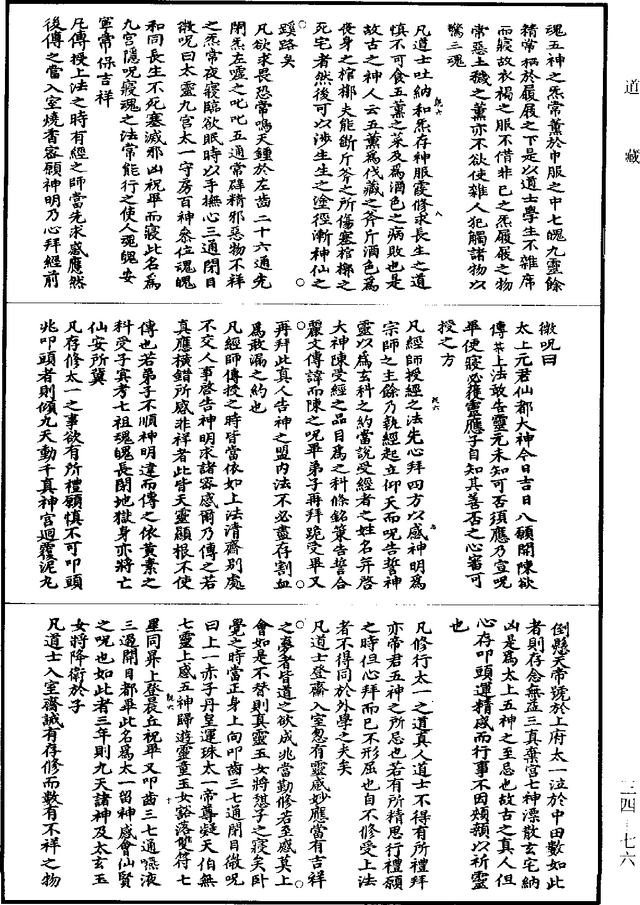 道藏
魂五神之炁常薰於巾服之中七魄九靈餘
精常栖於履屐之下是以道士學生不雜席
而寢故衣褐之服不借非已之炁履屐之物
常惡土穢之薰亦不欲使雜人犯觸諸物以
驚三魂
凡道士吐納和炁存神服霞修求長生之道
慎不可食五薰之菜及為酒色之病敗也是
故古之神人云五薰為伐藏之斧斤酒色為
喪身之棺槨夫能斷斤斧之所傷塞棺槨之
死宅者然後可以涉生生之塗徑漸神仙之
蹊路矣
凡欲求畏恐常鳴天鍾於左齒二十六通先
閉炁左靈之叱叱五通常辟精邪惡物不祥
之炁常夜寢臨欲眠時以手撫心三通閉目
微呪曰太靈九宮太一守房百神參位魂魄
和同長生不死塞滅邪凶祝畢而寢此名為
九宮隱呪寢魂之法常能行之使人魂魄安
寧常保吉祥
凡傳授上法之時有經之師當先求感應然
後傳之當入室燒香密願神明乃心拜經前
微呪曰
太上元君仙都大神今日吉日八願開陳欲
傳某上法敢告靈元未知可否須應乃宣呪
畢便寢必獲靈應子自知其善否之心審可
授之方
凡經師授經之法先心拜四方以感神明為
宗師之主餘乃執經起立仰天而呪告誓神
靈以為玄科之約當說受經者之姓名并啓
大神陳受經之品目為之科條銘策告誓合
麗文傳諱而陳之呪畢弟子再拜跪受畢又
再拜此真人告神之盟內法不必盡存割血
為敢漏之約也
凡經師傳授之時皆當依如上法清齋別處
不交人事啓告神明求諸密感爾乃傳之若
真應橫錯所感非祥者此皆天靈顧根不使
傳也若弟子不順神明違而傳之依黃素之
科受子賓考七祖魂魄長閉地獄身亦將亡
仙安所冀
凡存修太一之事欲有所禮願慎不可叩頭
兆叩頭者則傾九天動千真神宮迴覆泥丸
倒懸天帝號於上府太一泣於中田數如此
者則存念無益三真棄宮七神漂散玄宅納
凶是為太上五神之至忌也故古之真人但
心存叩頭運精感而行事不因頰額以祈靈
也
凡修行太一之道真人道士不得有所禮拜
亦帝君五神之所忌也若有所精思行禮願
之時但心拜而已不形屈也自不修受上法
者不得同於外學之夫矣
凡道士登齋入室忽有靈感妙應當有吉祥
之夢者皆道之欲成兆當勤修若至感莫上
會如是不替則真靈玉女將想子之寢矣臥
覺之時當正身上向叩齒三七通閉目微呪
曰上一赤子丹皇運珠太一帝尊凝天伯無
七靈上感五神歸遊靈童玉女豁落雙符七
星同昇上登晨丘祝畢又叩齒三七通嚥液
三過開目都畢此名為太一留神感會仙賢
之呪也如此者三年則九天諸神及太玄玉
女將降衛於子
凡道士入室齋誠有存修而數有不祥之物
三四—七六